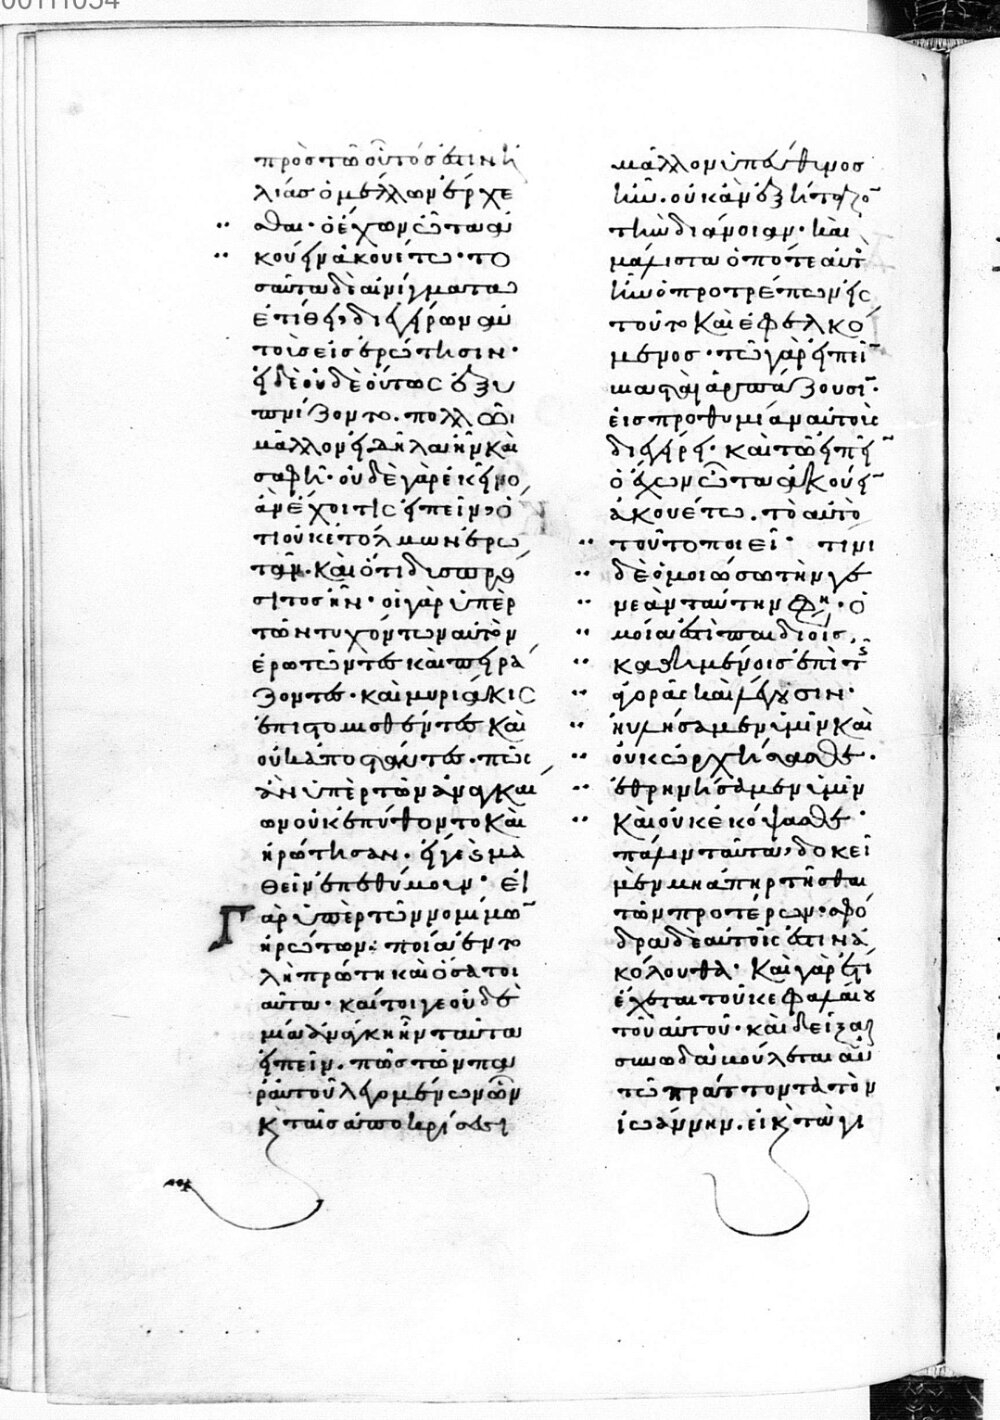 πρὸς τῶ οὗτός ἐστιν ἠ
λίας ὁ μέλλων ἔρχε
σθαι· ὁ ἔχων ὦτα ἀ
κούειν ἀκουέτω· το
σαῦτα δὲ αἰνίγματα
ἐτίθει, διεγείρων αὐ
τοὺς εἰς ἐρώτησιν·
εἰ δὲ οὐδὲ οὕτως ἀφυ
πνίζοντο. πολλῶ
μᾶλλον εἰ δῆλα ἦν καὶ
σαφῆ· οὐδὲ γὰρ ἐκεῖνο
ἂν ἔχοι τις εἰπεῖν, ὅ
τι οὐκ ἐτόλμων ἐρω
τᾶν. καὶ ὅτι δυσπρό
σιτος ἦν· οἱ γὰρ ὑπὲρ
τῶν τυχόντων αὐτὸν
ἐρωτῶντες καὶ πειρά
ζοντες· καὶ μυριάκις
ἐπιστομισθέντες καὶ
οὐκ ἀποστάντες. πῶς
ἂν ὑπὲρ τῶν ἀναγκαί
ων οὐκ ἐπύθοντο καὶ
ἠρώτησαν. εἴγε μα
θεῖν ἐπεθύμουν· εἰ
γὰρ ὑπὲρ τῶν νομίμων
ἠρώτων· ποία ἐντο
λὴ πρώτη καὶ ὅσα τοι
αῦτα· καίτοιγε οὐδε
μία ἀνάγκη ἦν ταῦτα
εἰπεῖν. πῶς τῶν παρ'
αὐτοῦ λεγομένων ὧν
κ ταῖς ἀποκρίσεσι
μᾶλλον ὑπεύθυνος
ἦν. οὐκ ἂν ἐξήταζον
τὴν διάνοιαν· καὶ
μάλιστα ὁπότε αὐτ
ἦν ὁ προτρέπων εἰς
τοῦτο καὶ ἐφελκό
μενος· τῶ γὰρ εἰπεῖν
βιασταὶ ἁρπάζουσιν·
εἰς προθυμίαν αὐτοὺς
διεγείρει· καὶ τῶ εἰπεῖν
ὁ ἔχων ὦτα ἀκούειν
ἀκουέτω. τὸ αὐτὸ
τοῦτο ποιεῖ· τίνι
δὲ ὁμοιώσω τὴν γε
νεὰν ταύτην φη· ὁ
μοία ἐστὶ παιδίοις
καθημένοις ἐπὶ τ
ἀγορᾶς καὶ λέγουσιν·
ηὐλήσαμεν ὑμῖν καὶ
οὐκ ὠρχήσασθε·
ἐθρηνήσαμεν ὑμῖν
καὶ οὐκ ἐκόψασθε·
πάλιν ταῦτα, δοκεῖ
μὲν μὴ ἀπηρτῆσθαι
τῶν προτέρων· σφό
δρα δὲ αὐτοῖς ἐστιν ἀ
κόλουθα· καὶ γὰρ ἔτι
ἔχεται τοῦ κεφαλαίου
τοῦ αὐτοῦ· καὶ δεῖξαι
συνωδὰ βούλεται αὐ
τῶ πράττοντα τὸν
ἰωάννην. εἰ κ τὰ γι